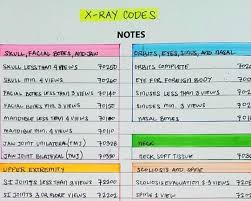 X-RAY CODES
NOTES
SKULL, FACIAL BONES, AND JAW
SKULL LESS THAN 4 VIEWS 70250
SKULL MIN. 4 VIEWS 70260
FACIAL BONES LESS THAN 3 VIEWS 70140
FACIAL BONES MIN 3 VIEWS 70150
MANDIBLE LESS THAN 4 VIEWS 70100
MANDIBLE MIN. 4 VIEWS 70110
JAW JOINT UNILATERAL (TMJ)
JAW JOINT BILATERAL (TMJ)
UPPER EXTREMITY
SI JOINTS LESS 3 VIEWS 72200
SI JOINTS 3 OR MORE VIEWS 72202
ORBITS, EYES, SINUS, AND NASAL
ORBITS COMPLETE
EYE FOR FOREIGN BODY
SINUSES LESS THAN 3 VIEWS
SINUSES MIN. 3 VIEWS
NASAL BONES MIN 3 VIEWS
NECK
NECK SOFT TISSUE
SCOLIOSIS AND SPINE
SCOLIOSIS EVALUATION 2 - 3 VIEWS
SPINE SINGLE VIEW